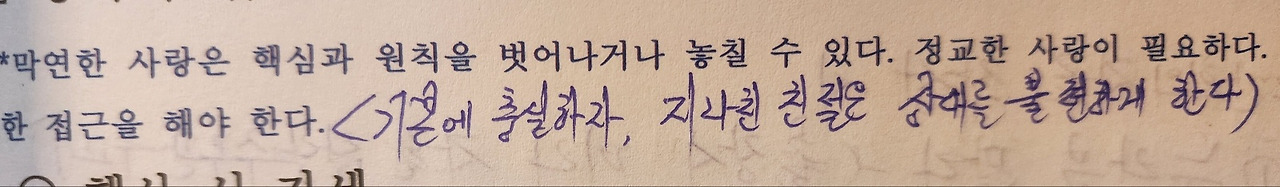 *막연한 사랑은 핵심과 원칙을 벗어나거나 놓칠 수 있다. 정교한 사랑이 필요하다.
한 접근을 해야 한다. <기본에 충실하자, 지나친 친절은 상대를 불편하게 한다)